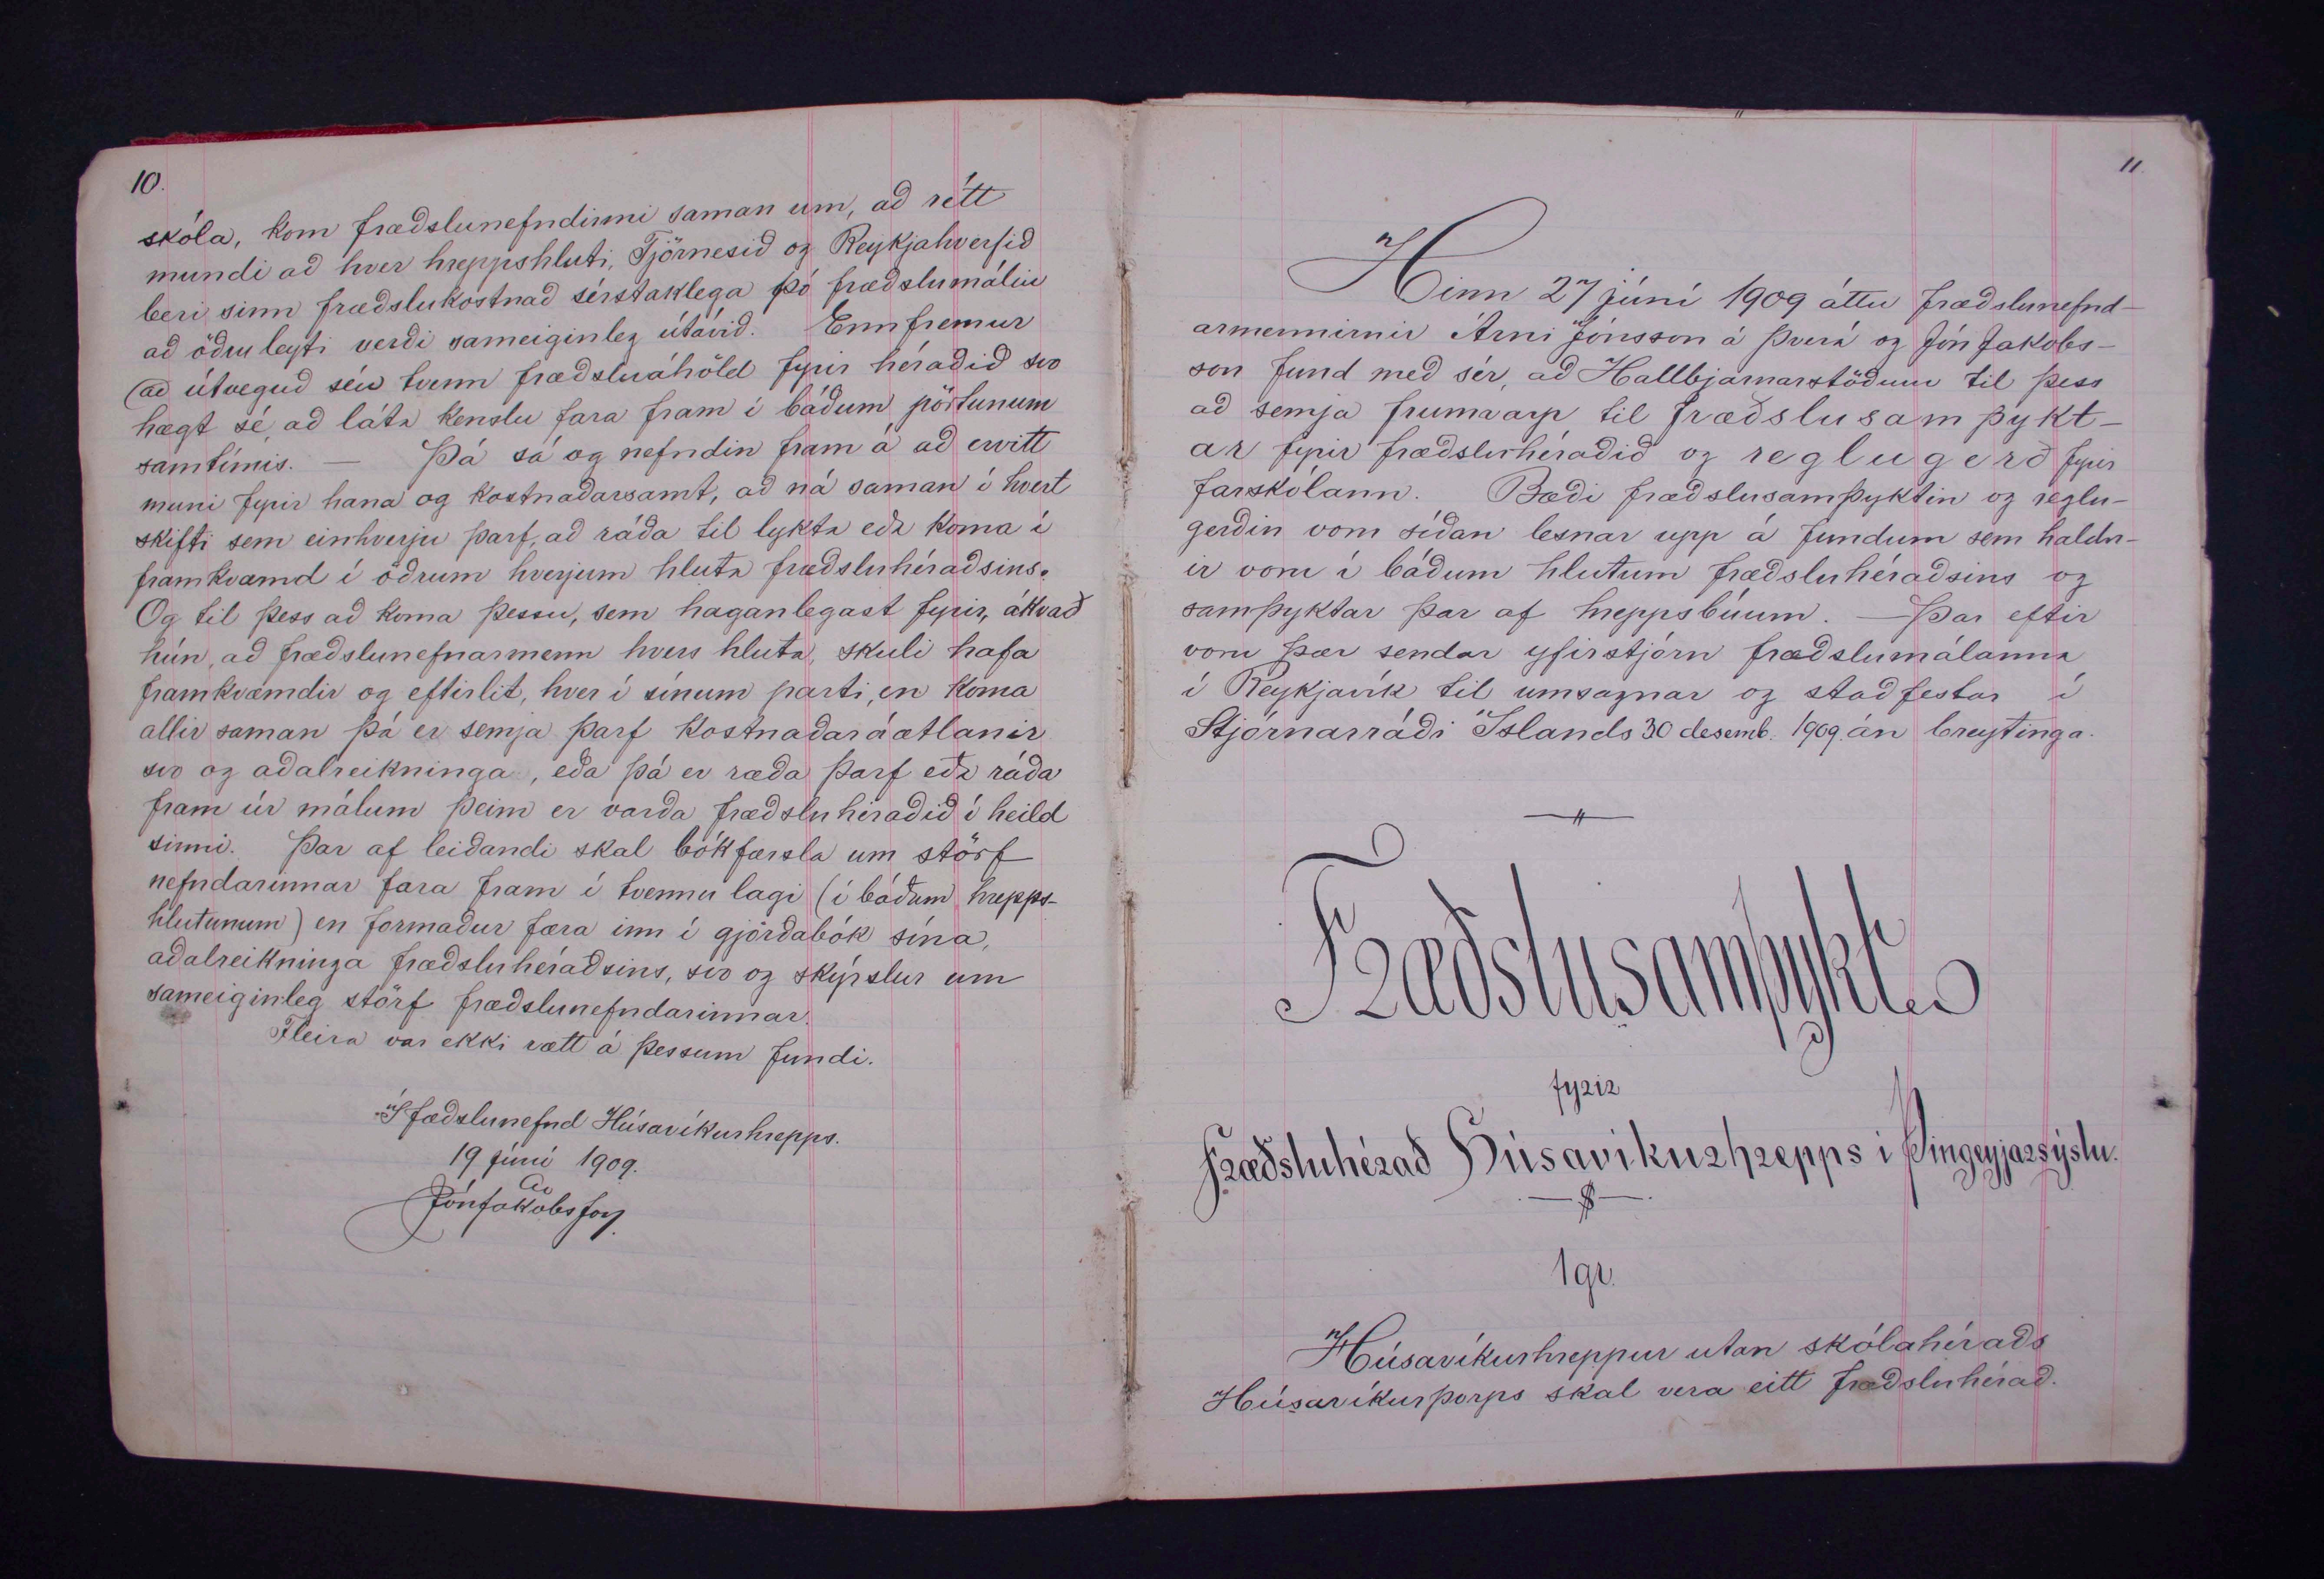 10.
skóla, kom fræðslunefndinni saman um, að rétt
mundi að hver hreppshluti, Tjörnesið og Reykjahverfið
beri sinn fræðslukostnað sérstaklega þó fræðslumálin
að öðru leyti verði sameiginleg útávið. Ennfremur
að útveguð séu tvenn fræðsluáhöld fyrir héraðið svo
hægt sé, að láta kenslu fara fram í báðum pörtunum
samtímis. — Þá sá og nefndin fram á að ervitt
muni fyrir hana og kostnaðarsamt, að ná saman í hvert
skifti sem einhverju þarf, að ráða til lykta eða koma í
framkvæmd í öðrum hverjum hluta fræðsluhéraðsins.
Og til þess að koma þessu, sem haganlegast fyrir, ákvað
hún, að fræðslunefnarmenn hvers hluta, skuli hafa
framkvæmdir og eftirlit, hver í sínum parti, en koma
allir saman þá er semja þarf kostnaðaráætlanir
svo og aðalreikninga, eða þá er ræða þarf eða ráða
fram úr málum þeim er varða fræðsluhéraðið í heild
sinni. Þar af leiðandi skal bókfærsla um störf
nefndarinnar fara fram í tvennu lagi (í báðum hrepps-
hlutunum) en formaður færa inn í gjörðabók sína,
aðalreikninga fræðsluhéraðsins, svo og skýrslur um
sameiginleg störf fræðslunefndarinnar.
Fleira var ekki rætt á þessum fundi.
Í fæðslunefnd Húsavíkurhrepps.
19 júní 1909.
Jón Jakobsson
11.
Hinn 27 júní 1909 áttu fræðslunefnd-
armennirnir Árni Jónsson á Þverá og Jón Jakobs-
son fund með sér, að Hallbjarnarstöðum til þess
að semja frumvarp til fræðslusamþykt-
ar fyrir fræðsluhéraðið og reglugerð fyrir
farskólann. Bæði fræðslusamþyktin og reglu-
gerðin voru síðan lesnar upp á fundum sem haldn-
ir voru í báðum hlutum fræðsluhéraðsins og
samþyktar þar af hreppsbúum. — Þar eftir
voru þær sendar yfirstjórn fræðslumálanna
í Reykjavík til umsagnar og staðfestar í
Stjórnarráði Íslands 30 desemb. 1909. án breytinga.
Fræðslusamþykt
fyrir
Fræðsluhérað Húsavíkurhrepps í Þingeyjarsýslu.
1 gr.
Húsavíkurhreppur utan skólahéraðs
Húsavíkurþorps skal vera eitt fræðsluhérað.